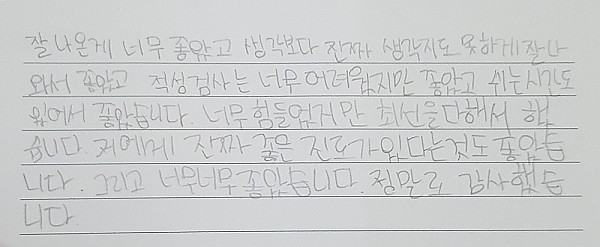 잘 나온게 너무 좋았고 생각보다 진짜 생각지도 못하게 잘 나
와서 좋았고 적성검사는 너무 어려웠지만 좋았고 쉬는시간도
있어서 좋았습니다. 너무 힘들었지만 최선을 다해서 했
습니다. 저에게 진짜 좋은 진로가 있다는것도 좋았습
니다. 그리고 너무너무 좋았습니다. 정말로 감사했습
니다.